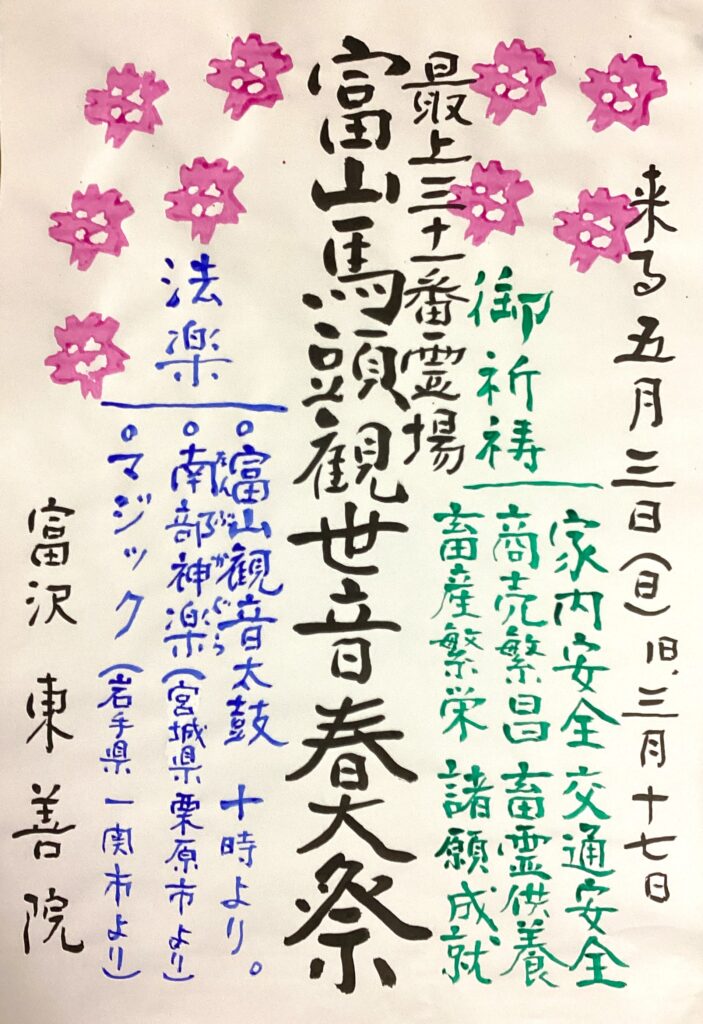 来る五月三日(日)旧、三月十七日
御祈祷
家内安全 交通安全
商売繁昌 畜霊供養
畜産繁栄 諸願成就
最上三十一番霊場
富山馬頭観世音春大祭
法楽
○富山観音太鼓 十時より。
○南部神楽(宮城県栗原市より)
なんぶかぐら
○マジック(岩手県一関市より)
富沢 東善院